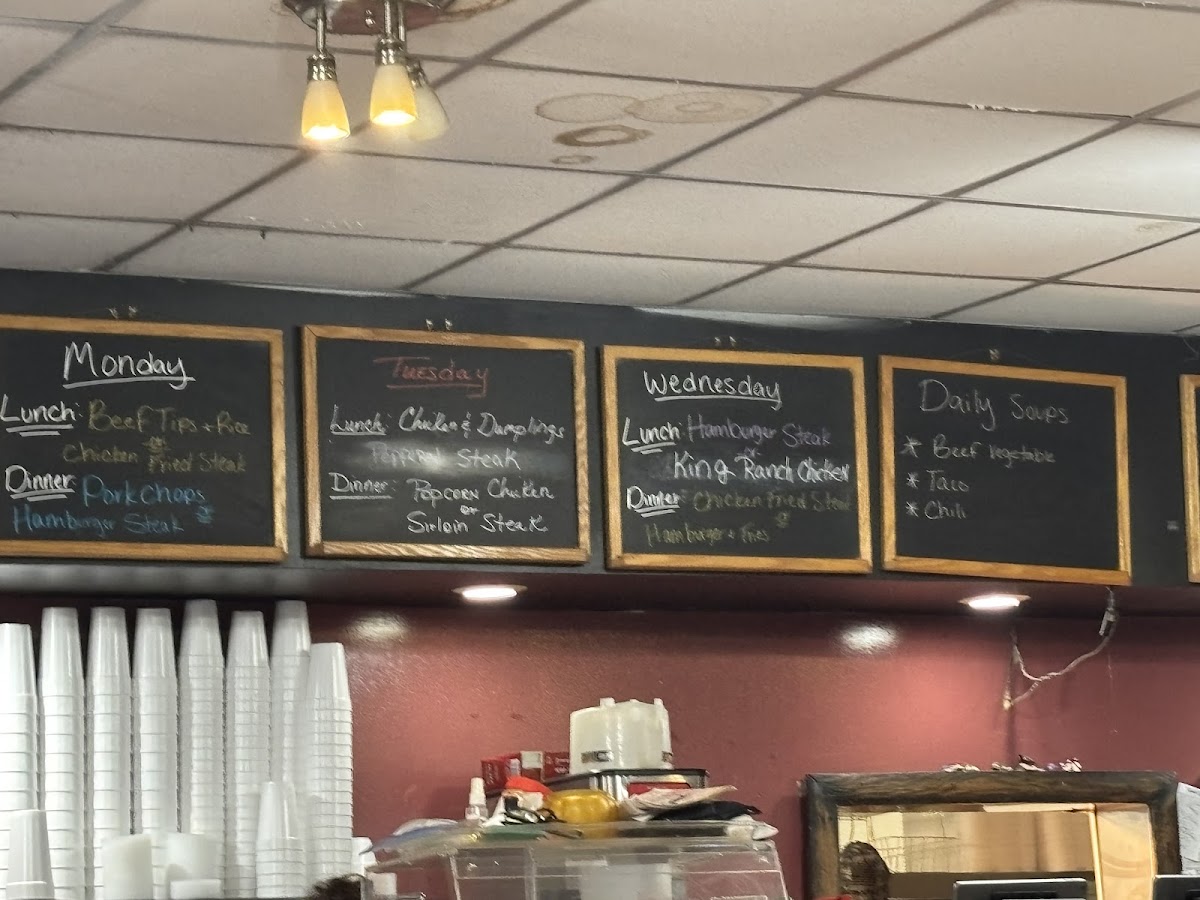 Monday
Lunch: Beef Tips + Rice
or
Chicken Fried Steak
Dinner: Pork Chops
or
Hamburger Steak
Tuesday
Lunch: Chicken & Dumplings
Steak
Dinner: Popcorn Chicken
or
Sirloin Steak
Wednesday
Lunch: Hamburger Steak
or
King Ranch Chicken
Dinner: Chicken Fried Steak
or
Hamburger + Fries
Daily Soups
* Beef Vegetable
* Taco
* Chili